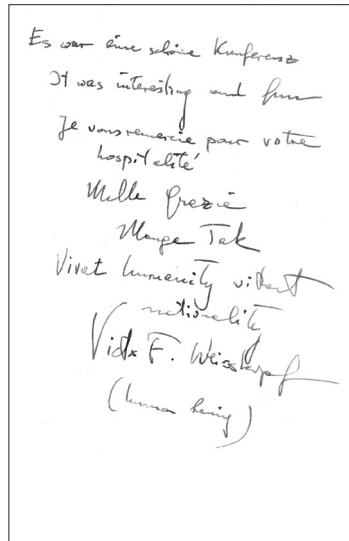 Es war eine schöne Konferenz
It was interesting and fun
Je vous remercie pour votre
hospitalité
Mille Grazie
Mange Tak
Vivat humanity without
nationality
Victor F. Weisskopf
(human being)